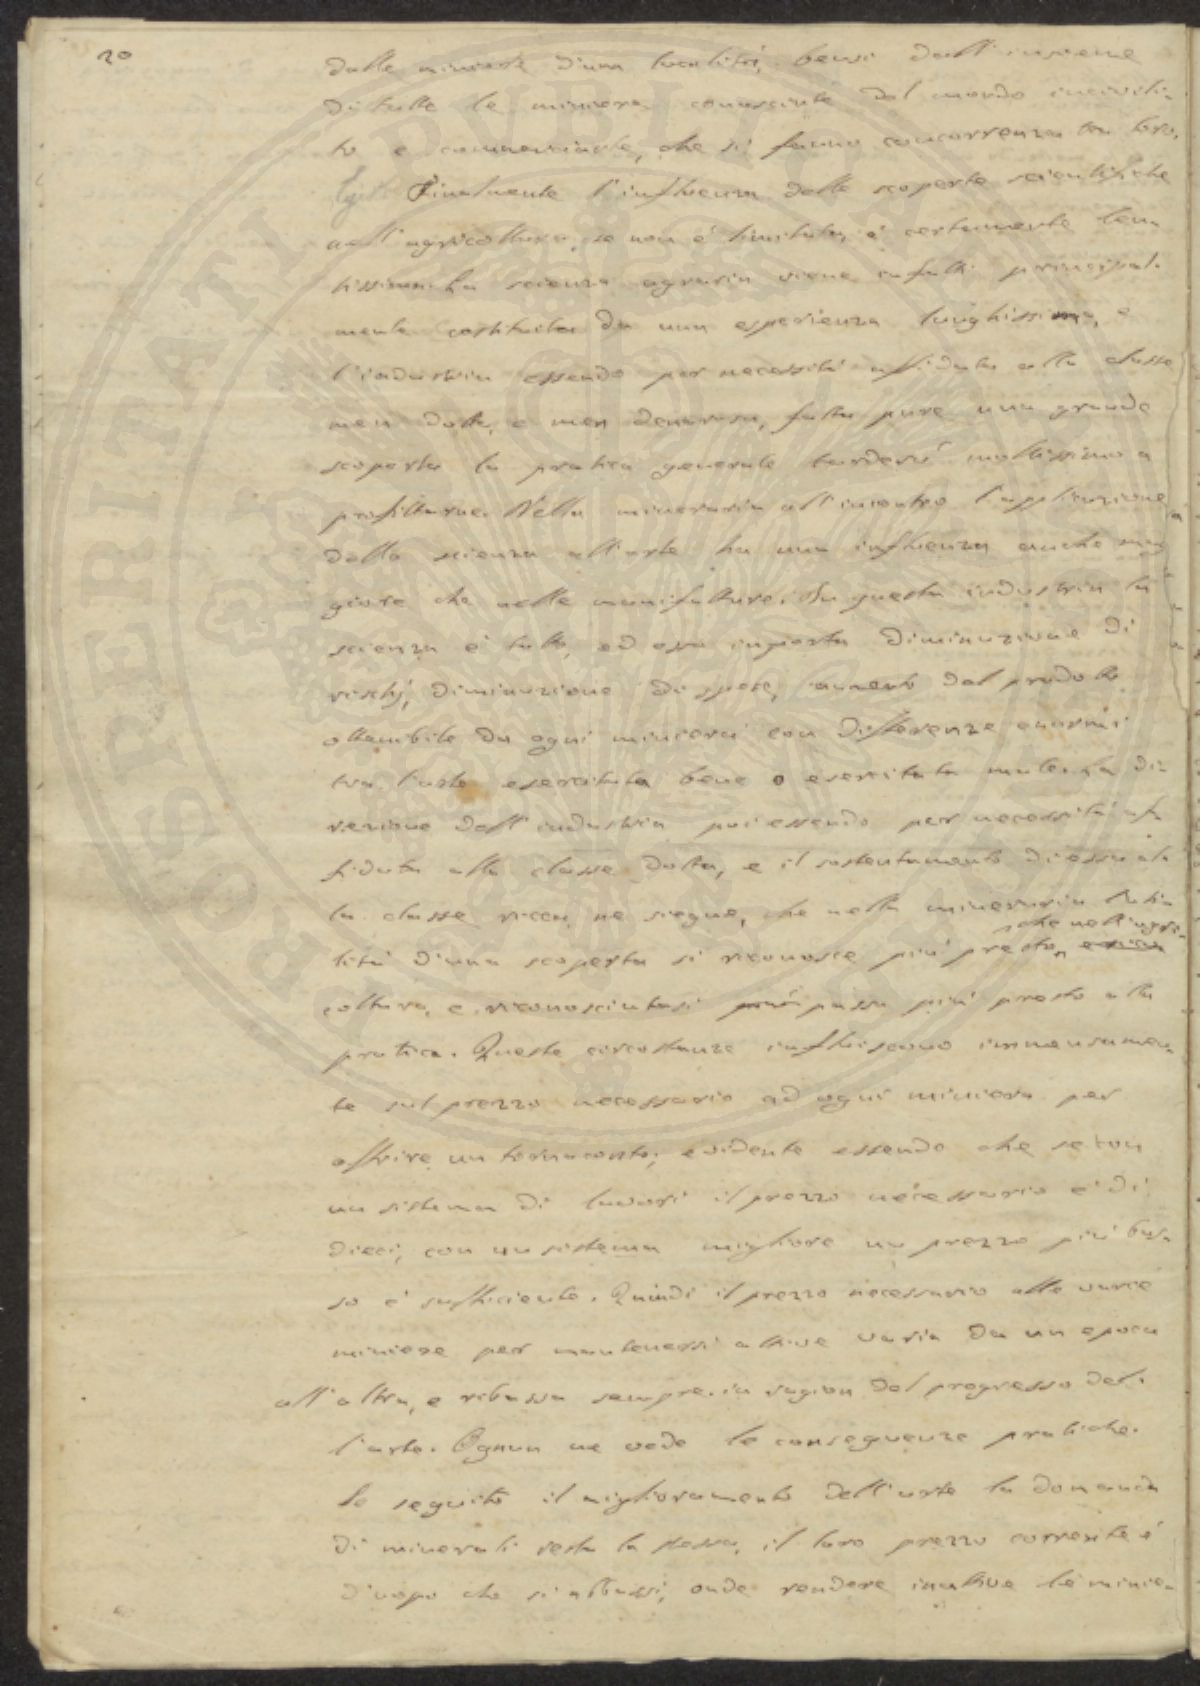 20
dalle miniere d'una località, bensì dall'insieme
di tutte le miniere conosciute dal mondo incivili-
to e commerciante, che si fanno concorrenza tra loro.
Finalmente l'influenza delle scoperte scientifiche
nell'agricoltura, se non è limitata, è certamente len-
tissima. La scienza agraria viene infatti principal-
mente costituita da una esperienza lunghissima, e
l'industria essendo per necessità affidata alla classe
men dotta, e men denarosa, fatta pure una grande
scoperta la pratica generale tarderà moltissimo a
profittarne. Nella mineraria all'incontro l'applicazione
della scienza all'arte ha una influenza anche mag
giore che nelle manifatture. In questa industria la
scienza è tutto, ed essa importa diminuzione di
rischj, diminuzione di spese, aumento del prodotto
ottenibile da ogni miniera con differenze enormi
tra l'arte esercitata bene o esercitata male. La di-
rezione dell'industria poi essendo per necessità af
fidata alla classe dotta, e il sostentamento di essa al-
la classe ricca, ne siegue, che nella mineraria l'uti-
che nell'agri-
lità d'una scoperta si riconosce più presto,
coltura, e riconosciutasi passa più presto alla
pratica. Queste circostanze influiscono immensamen-
te sul prezzo necessario ad ogni miniera per
offrire un tornaconto; evidente essendo che se con
un sistema di lavori il prezzo necessario è di
dieci, con un sistema migliore un prezzo più bas-
so è sufficiente. Quindi il prezzo necessario alle varie
miniere per mantenersi attive varia da un epoca
all'altra, e ribassa sempre in ragion del progresso del-
l'arte. Ognun ne vede le conseguenze pratiche.
Se seguito il miglioramento dell'arte la domanda
di minerali resta la stessa, il loro prezzo corrente è
d'uopo che si abbassi, onde rendere inattive le minie-